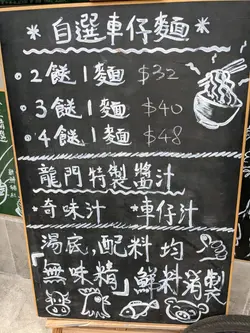 *自選車仔麵*
2餸1麵 $32
3餸1麵 $40
4餸1麵 $48
龍門特製醬汁
*奇味汁 *車仔汁
湯底,配料均
"無味精"鮮料消製